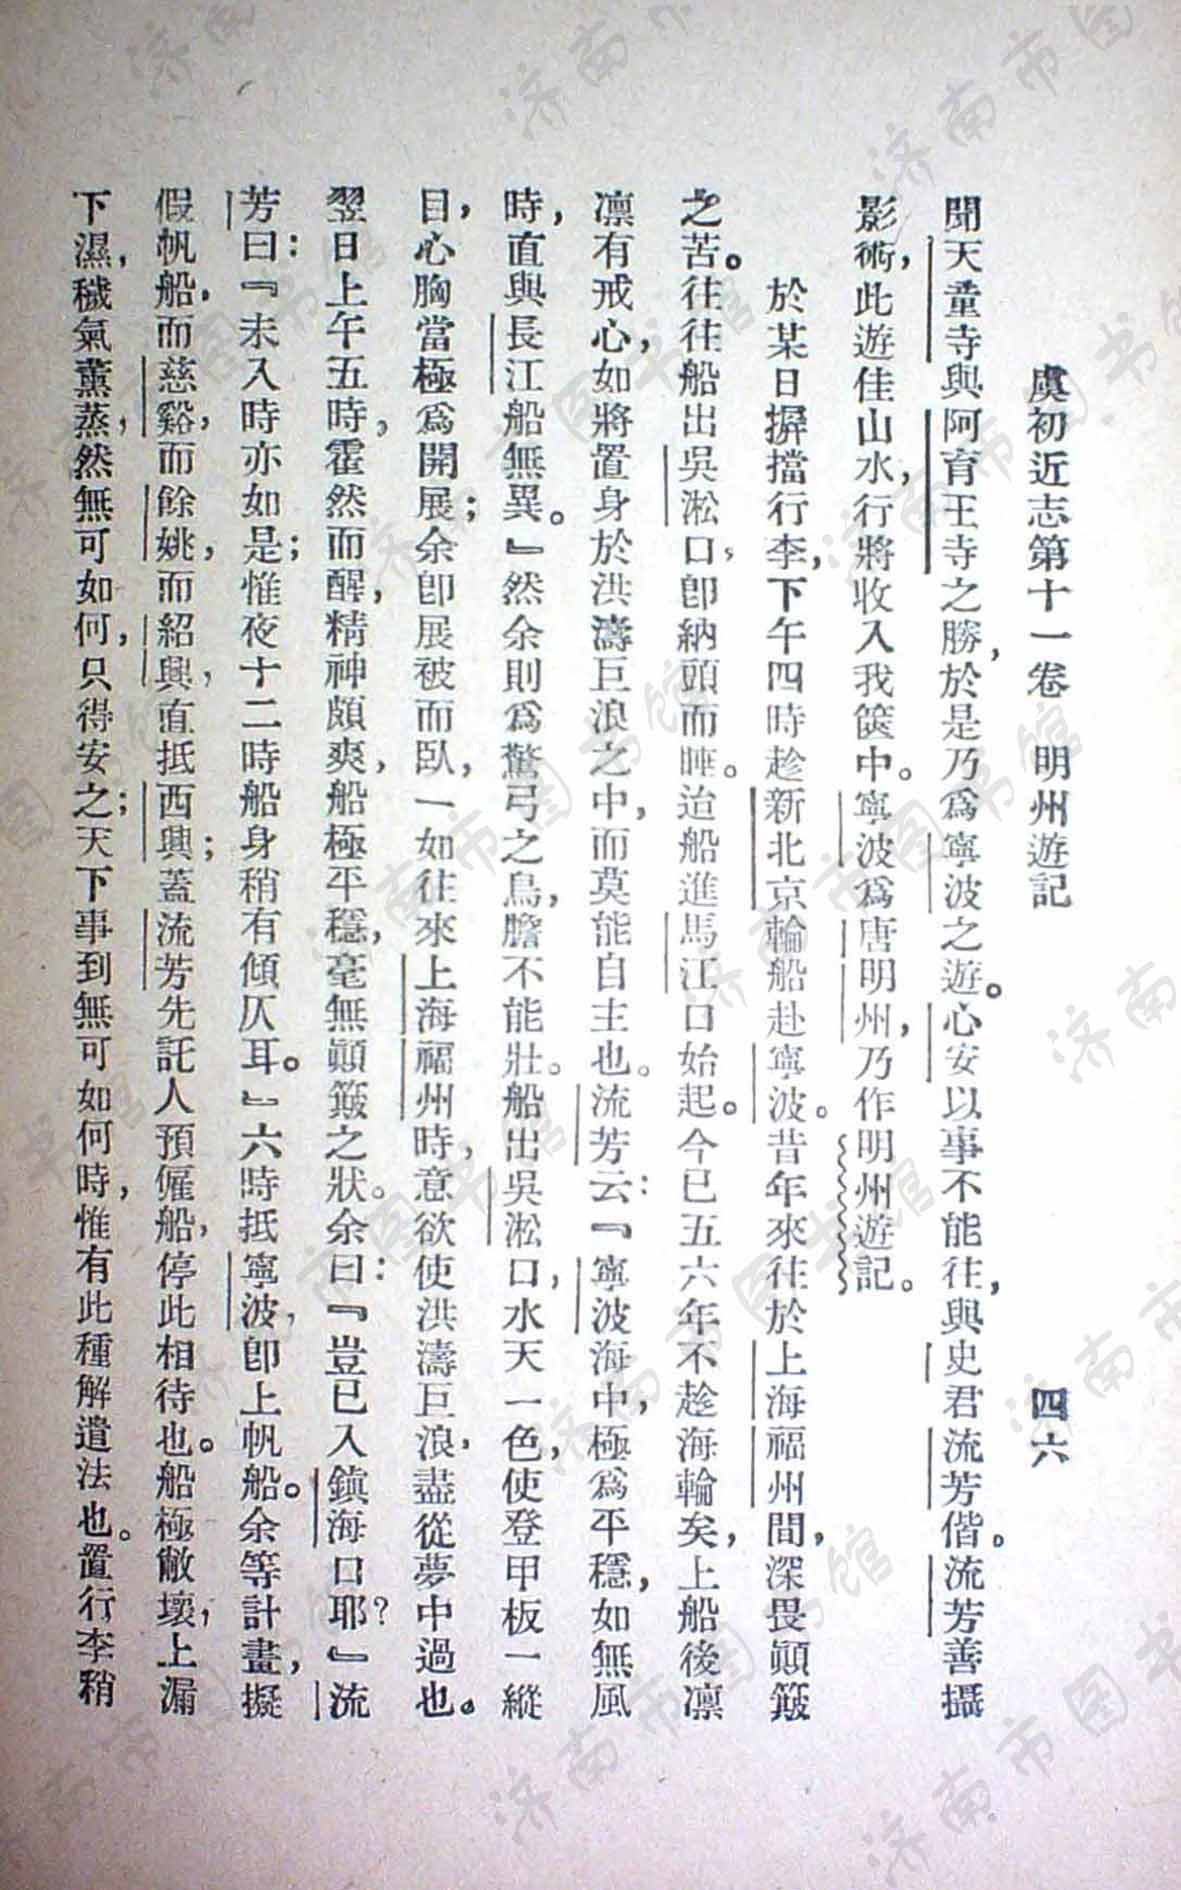 虞初近志第十一卷　明州遊記　四六
聞天童寺與阿育王寺之勝，於是乃爲寧波之遊。心安以事不能往，與史君流芳偕。流芳善攝
影術，此遊佳山水，行將收入我篋中。寧波爲唐明州，乃作明州遊記。
於某日摒擋行李，下午四時趁新北京輪船赴寧波。昔年來往於上海福州間，深畏顚簸
之苦。往往船出吳淞口，卽納頭而睡。迨船進馬江口始起。今已五六年不趁海輪矣，上船後凛
凛有戒心，如將置身於洪濤巨浪之中，而莫能自主也。流芳云：『寧波海中，極爲平穩，如無風
時，直與長江船無異。』然余則爲驚弓之鳥，膽不能壯。船出吳淞口，水天一色，使登甲板一縱
目，心胸當極爲開展；余卽展被而臥，一如往來上海福州時，意欲使洪濤巨浪，盡從夢中過也。
翌日上午五時，霍然而醒，精神頗爽，船極平穩，毫無顚簸之狀。余曰：『豈已入鎭海口耶？』流
芳曰：『未入時亦如是；惟夜十二時船身稍有傾仄耳。』六時抵寧波，卽上帆船。余等計畫，擬
假帆船，而慈谿，而餘姚，而紹興，直抵西興；蓋流芳先託人預僱船，停此相待也。船極敝壞，上漏
下濕，穢氣薰蒸，然無可如何，只得安之；天下事到無可如何時，惟有此種解遣法也。置行李稍
濟南市图书馆